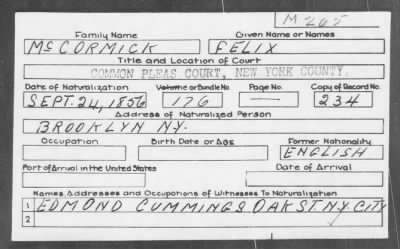 M 265
Family Name Given Name or Names
McCORMICK FELIX
Title and Location of Court
COMMON PLEAS COURT, NEW YORK COUNTY.
Date of Naturalization Volume or Bundle No. Page No. Copy of Record No.
SEPT. 24, 1856 176 — 234
Address of Naturalized Person
BROOKLYN N.Y.
Occupation Birth Date or Age Former Nationality
ENGLISH
Port of Arrival in the United States Date of Arrival
Names, Addresses and Occupations of Witnesses To Naturalization
1 EDMOND CUMMINGS OAK ST. N.Y. CITY
2